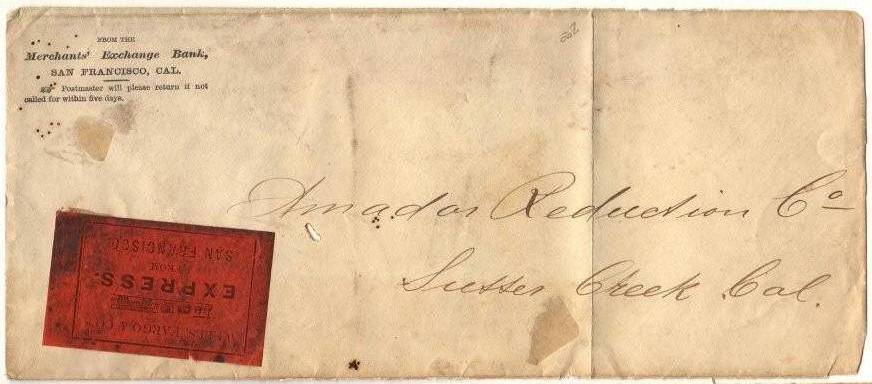 FROM THE
Merchants' Exchange Bank,
SAN FRANCISCO, CAL.
Postmaster will please return if not
called for within five days.
Amador Reduction Co
Sutter Creek Cal.
FARGO & CO'S
EXPRESS.
FROM
SAN FRANCISCO